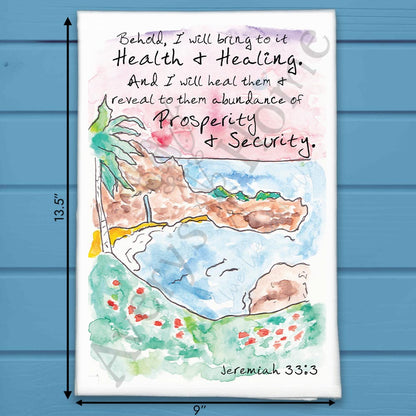 Behold, I will bring to it
Health & Healing.
And I will heal them &
reveal to them abundance of
Prosperity
& Security.
Jeremiah 33:3
13.5"
9"